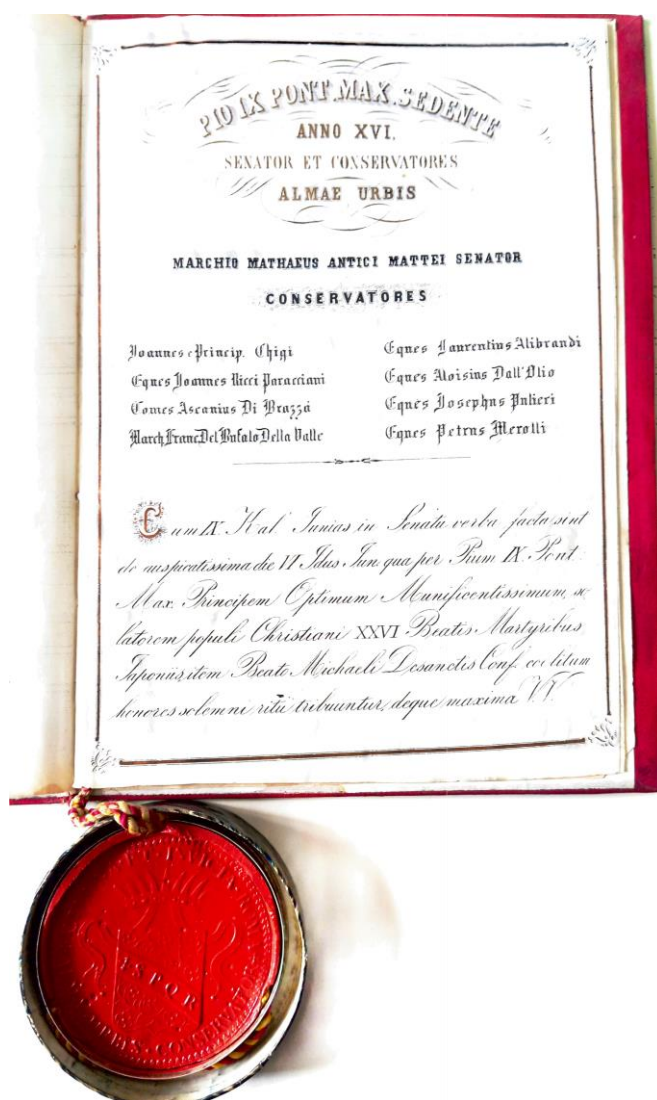 PIO IX PONT. MAX. SEDENTE
ANNO XVI.
SENATOR ET CONSERVATORES
ALMAE URBIS
MARCHIO MATHAEUS ANTICI MATTEI SENATOR
CONSERVATORES
Joannes e Princip. Chigi
Eques Joannes Ricci Paracciani
Comes Ascanius Di Brazzà
March. Franc. Del Bufalo Della Valle
Eques Laurentius Alibrandi
Eques Aloisius Dall'Olio
Eques Josephus Pulieri
Eques Petrus Merolli
Cum IX Kal. Junias in Senatu verba facta sint
de auspicatissima die VI Idus Jun qua per Pium IX Pont.
Max. Principem Optimum Munificentissimum,
latorem populi Christiani XXVI Beatis Martyribus
Japoniis, item Beato Michaeli Desanctis Conf. coelitum
honores solemni ritu tribuuntur, deque maxima VV.
SPQR
CONSERVATOR